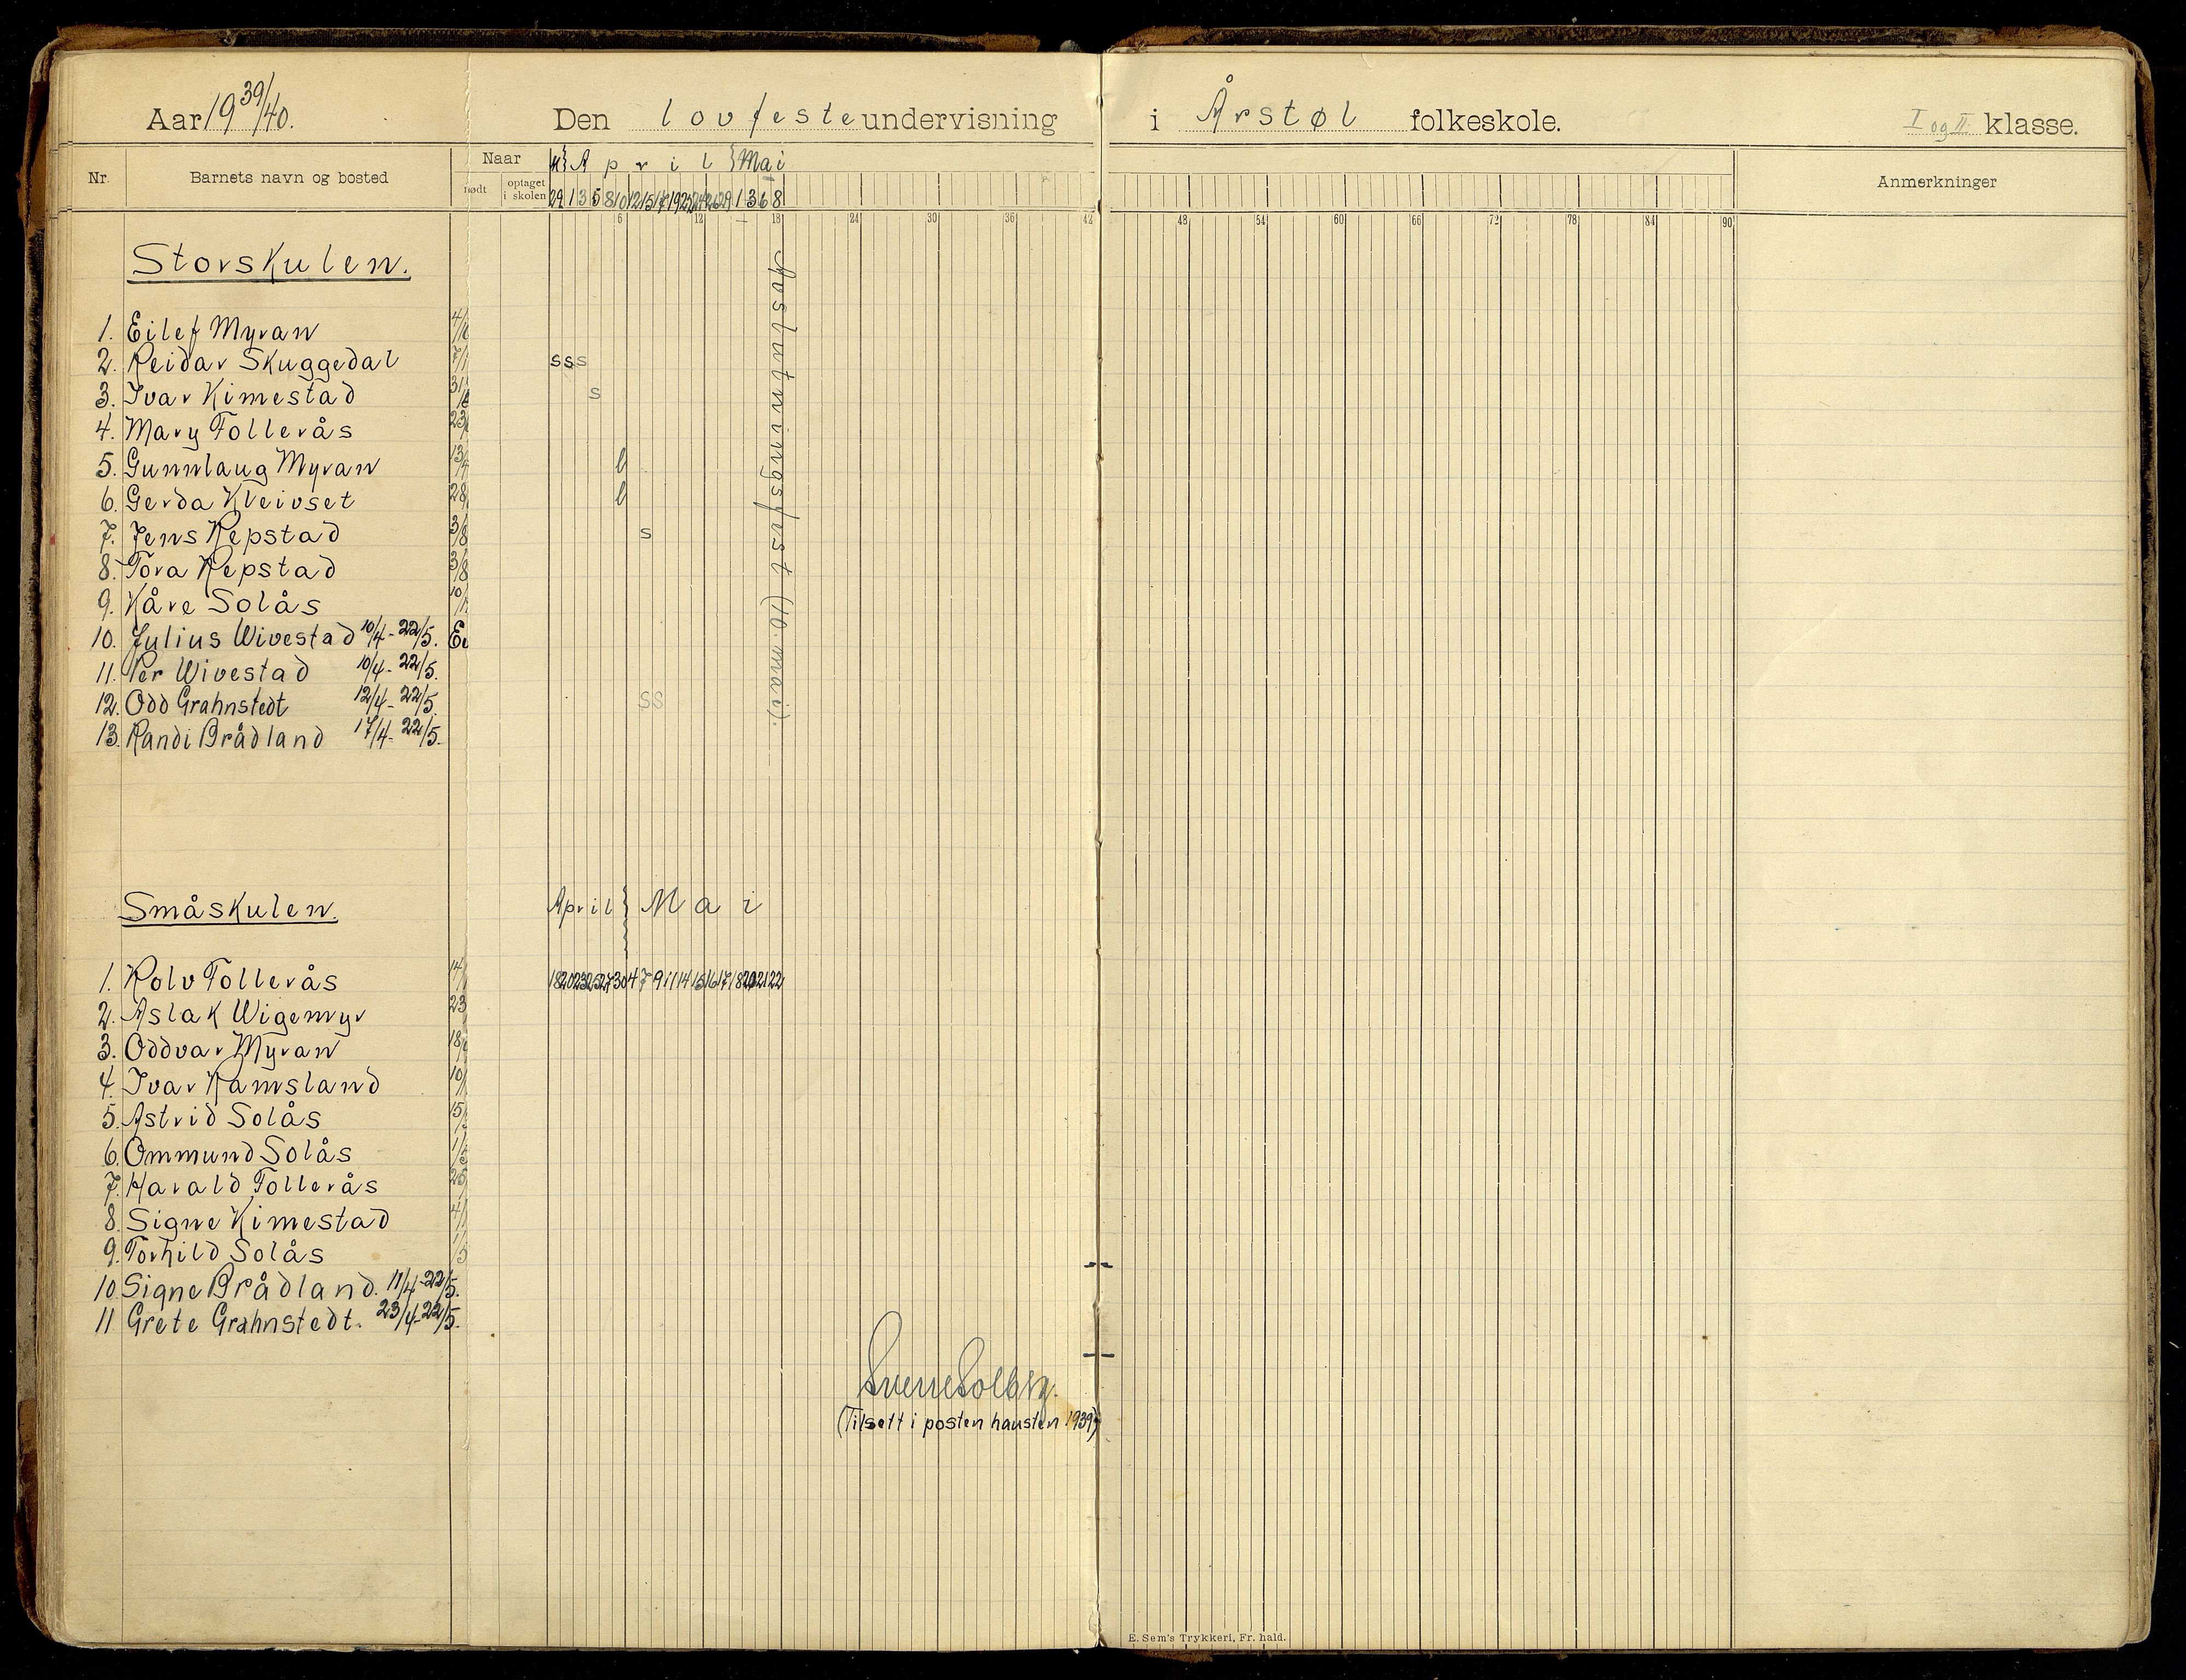 Aar 19 39/40. Den lovfeste undervisning i Årstøl folkeskole. I og II klasse.
Nr. Barnets navn og bosted Naar M April Mai Anmerkninger
født optaget i skolen 29 1 3 5 8 10 12 15 17 19 22 24 26 29 1 3 6 8
6 12 18 24 30 36 42 48 54 60 66 72 78 84 90
Storskulen.
Avslutningsfest (10. mai).
1. Eilef Myran 4/
2. Reidar Skuggedal 7/ s s s
3. Ivar Kimestad 31/ s
4. Mary Tollevås 23/
5. Gunnlaug Myran 13/ l
6. Gerda Kleivset 28/ l
7. Jens Repstad 3/8 s
8. Tora Repstad 3/8
9. Kåre Solås 10/
10. Julius Wivestad 10/4 - 22/5.
11. Per Wivestad 10/4 - 22/5.
12. Odd Grahnstedt 12/4 - 22/5. s s
13. Randi Brådland 17/4 - 22/5.
Småskulen. April Mai
1. Rolv Tollevås 14/ 18 20 23 25 27 30 4 7 9 11 14 15 16 17 18 20 21 22
2. Aslak Wigemyr 23
3. Oddvar Myran 18/
4. Ivar Ramsland 10/
5. Astrid Solås 15/
6. Ommund Solås 1/
7. Harald Tollevås 25/
8. Signe Kimestad 4/
9. Torhild Solås 1/
10. Signe Brådland. 11/4 - 22/5.
11 Grete Grahnstedt. 23/4 - 22/5.
Sverre Solberg.
(Tilsett i posten hausten 1939)
E. Sem's Trykkeri, Fr. hald.